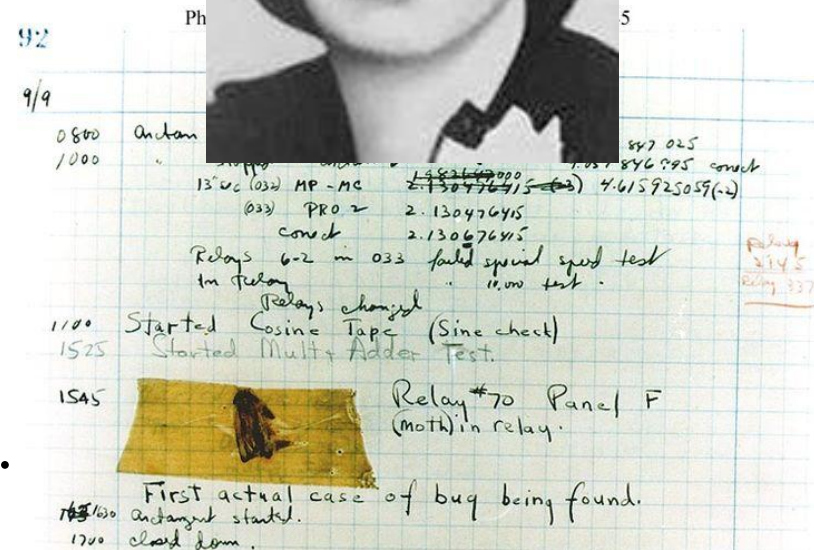 Ph 5
92
9/9
0800 Arctan 847 025
1000 " 846 995 correct
13" UC (032) MP - MC 2.130476415 (-3) 4.615925059(-2)
(033) PRO 2 2.130476415
correct 2.130676415
Relays 6-2 in 033 failed special speed test
In Relay " 10,000 test .
Relays changed
Relay
Relay 337
1100 Started Cosine Tape (Sine check)
1525 Started Mult+ Adder Test.
1545 Relay #70 Panel F
(moth) in relay.
First actual case of bug being found.
1630 arctangent started.
1700 closed down .